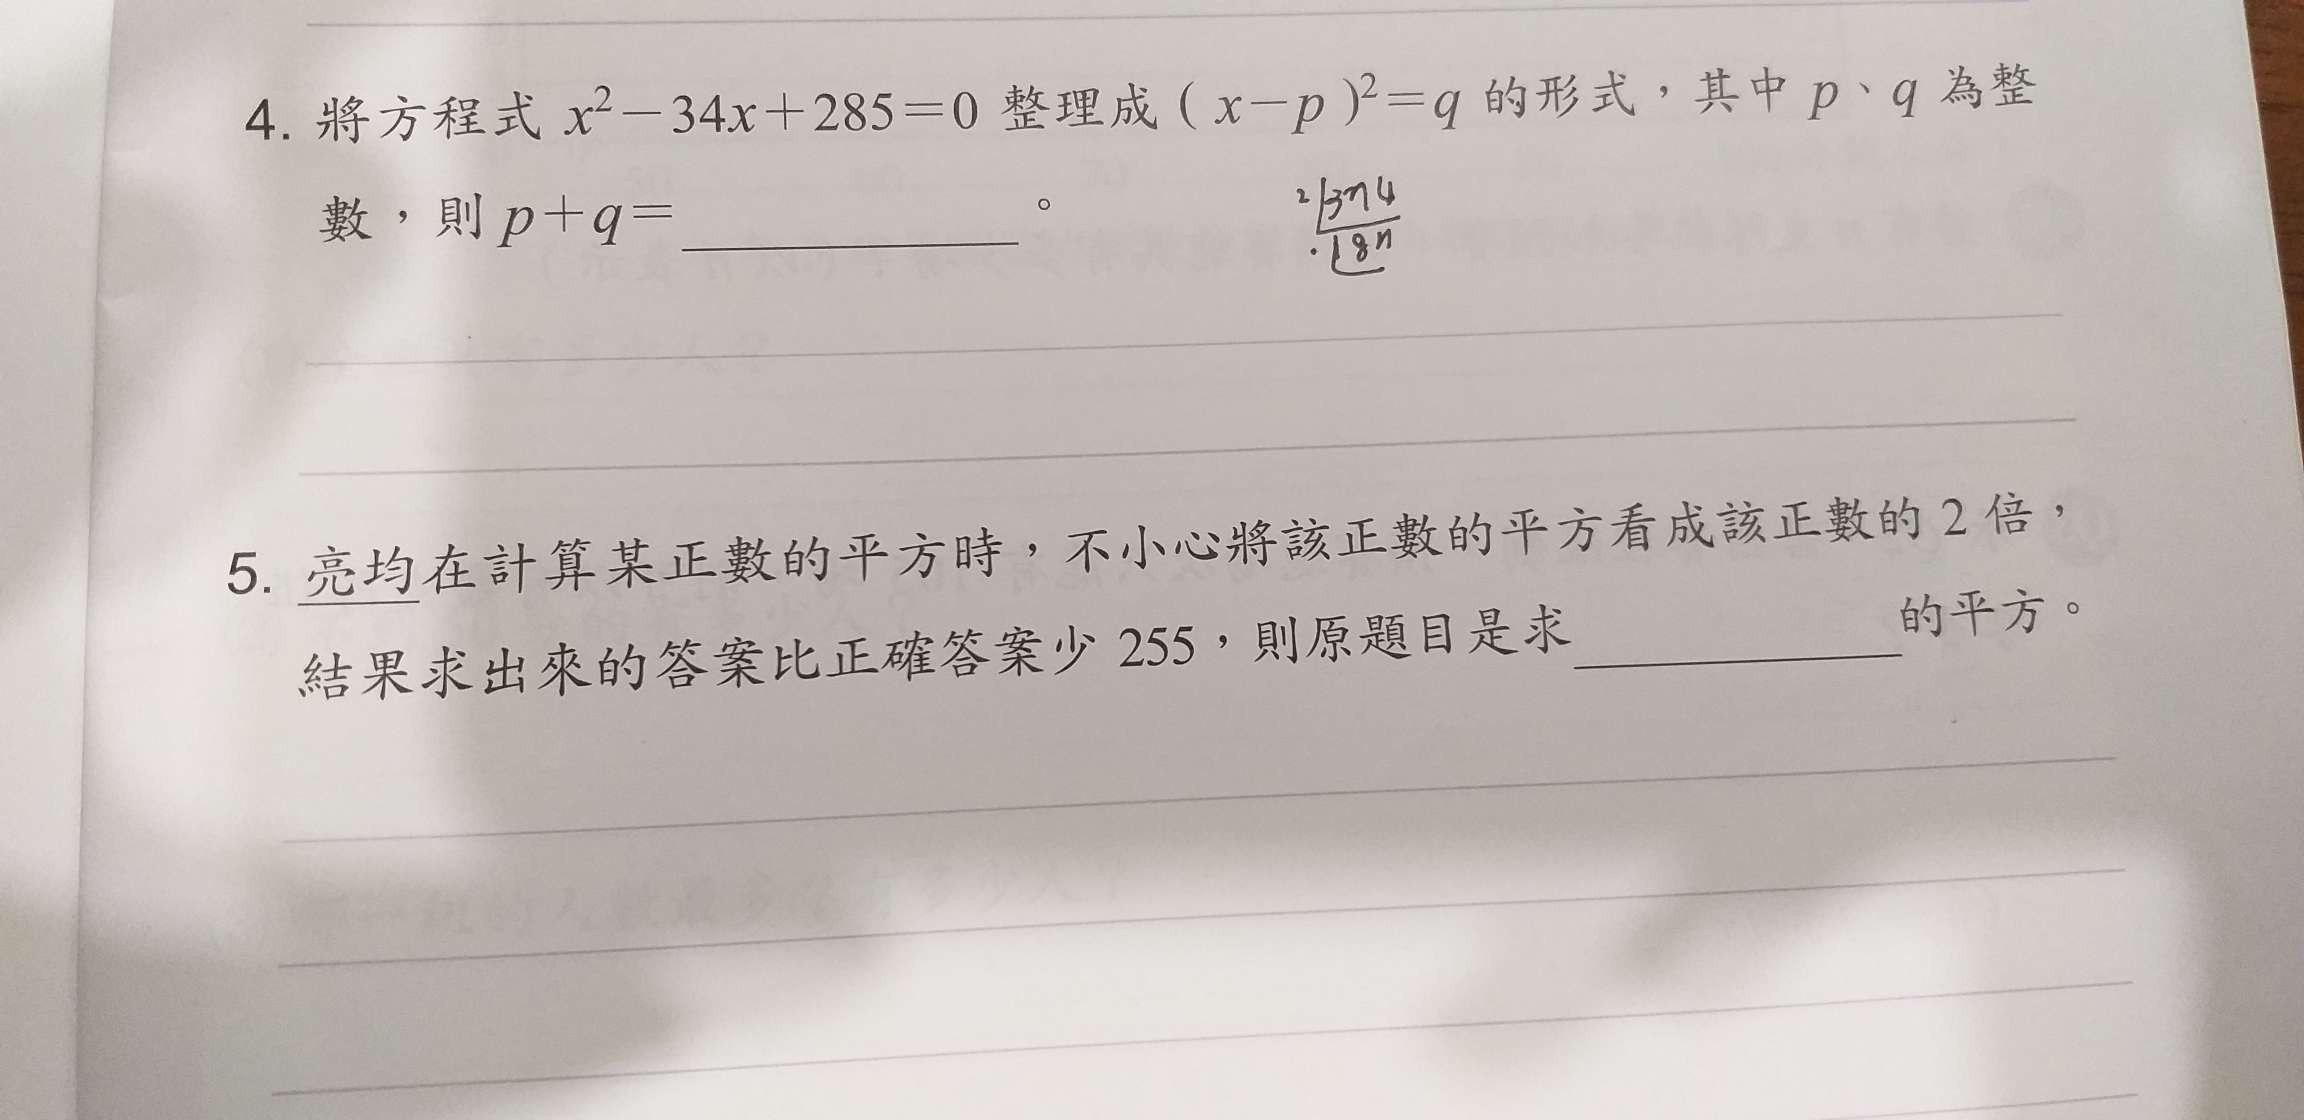 4. 將方程式 x²－34x＋285＝0 整理成（x－p）²＝q 的形式，其中 p、q 為整
數，則 p＋q＝＿＿＿＿＿＿。
5. 亮均在計算某正數的平方時，不小心將該正數的平方看成該正數的 2 倍，
結果求出來的答案比正確答案少 255，則原題目是求＿＿＿＿＿＿的平方。